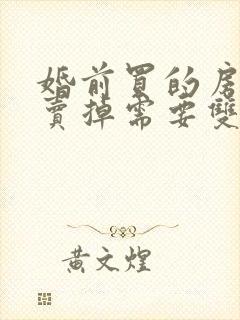 婚前買的房
賣掉需要雙
黃文煌